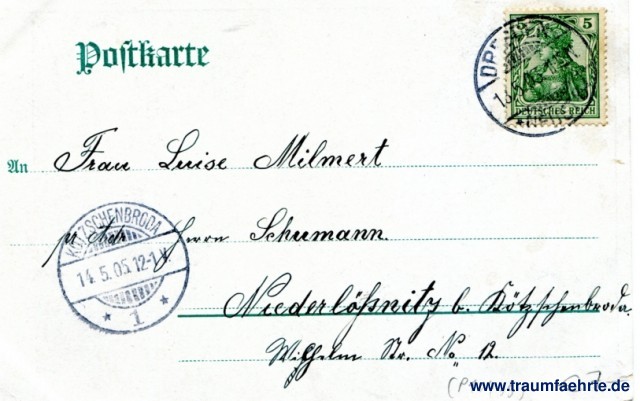 Postkarte
5
DEUTSCHES REICH
An Frau Luise Milmert
p. Adr. Herrn Schumann.
KÖTZSCHENBRODA
14.5.05.12-1N.
* 1 *
Niederlößnitz b. Kötzschenbroda.
Wilhelm Str. No. 12.
www.traumfaehrte.de